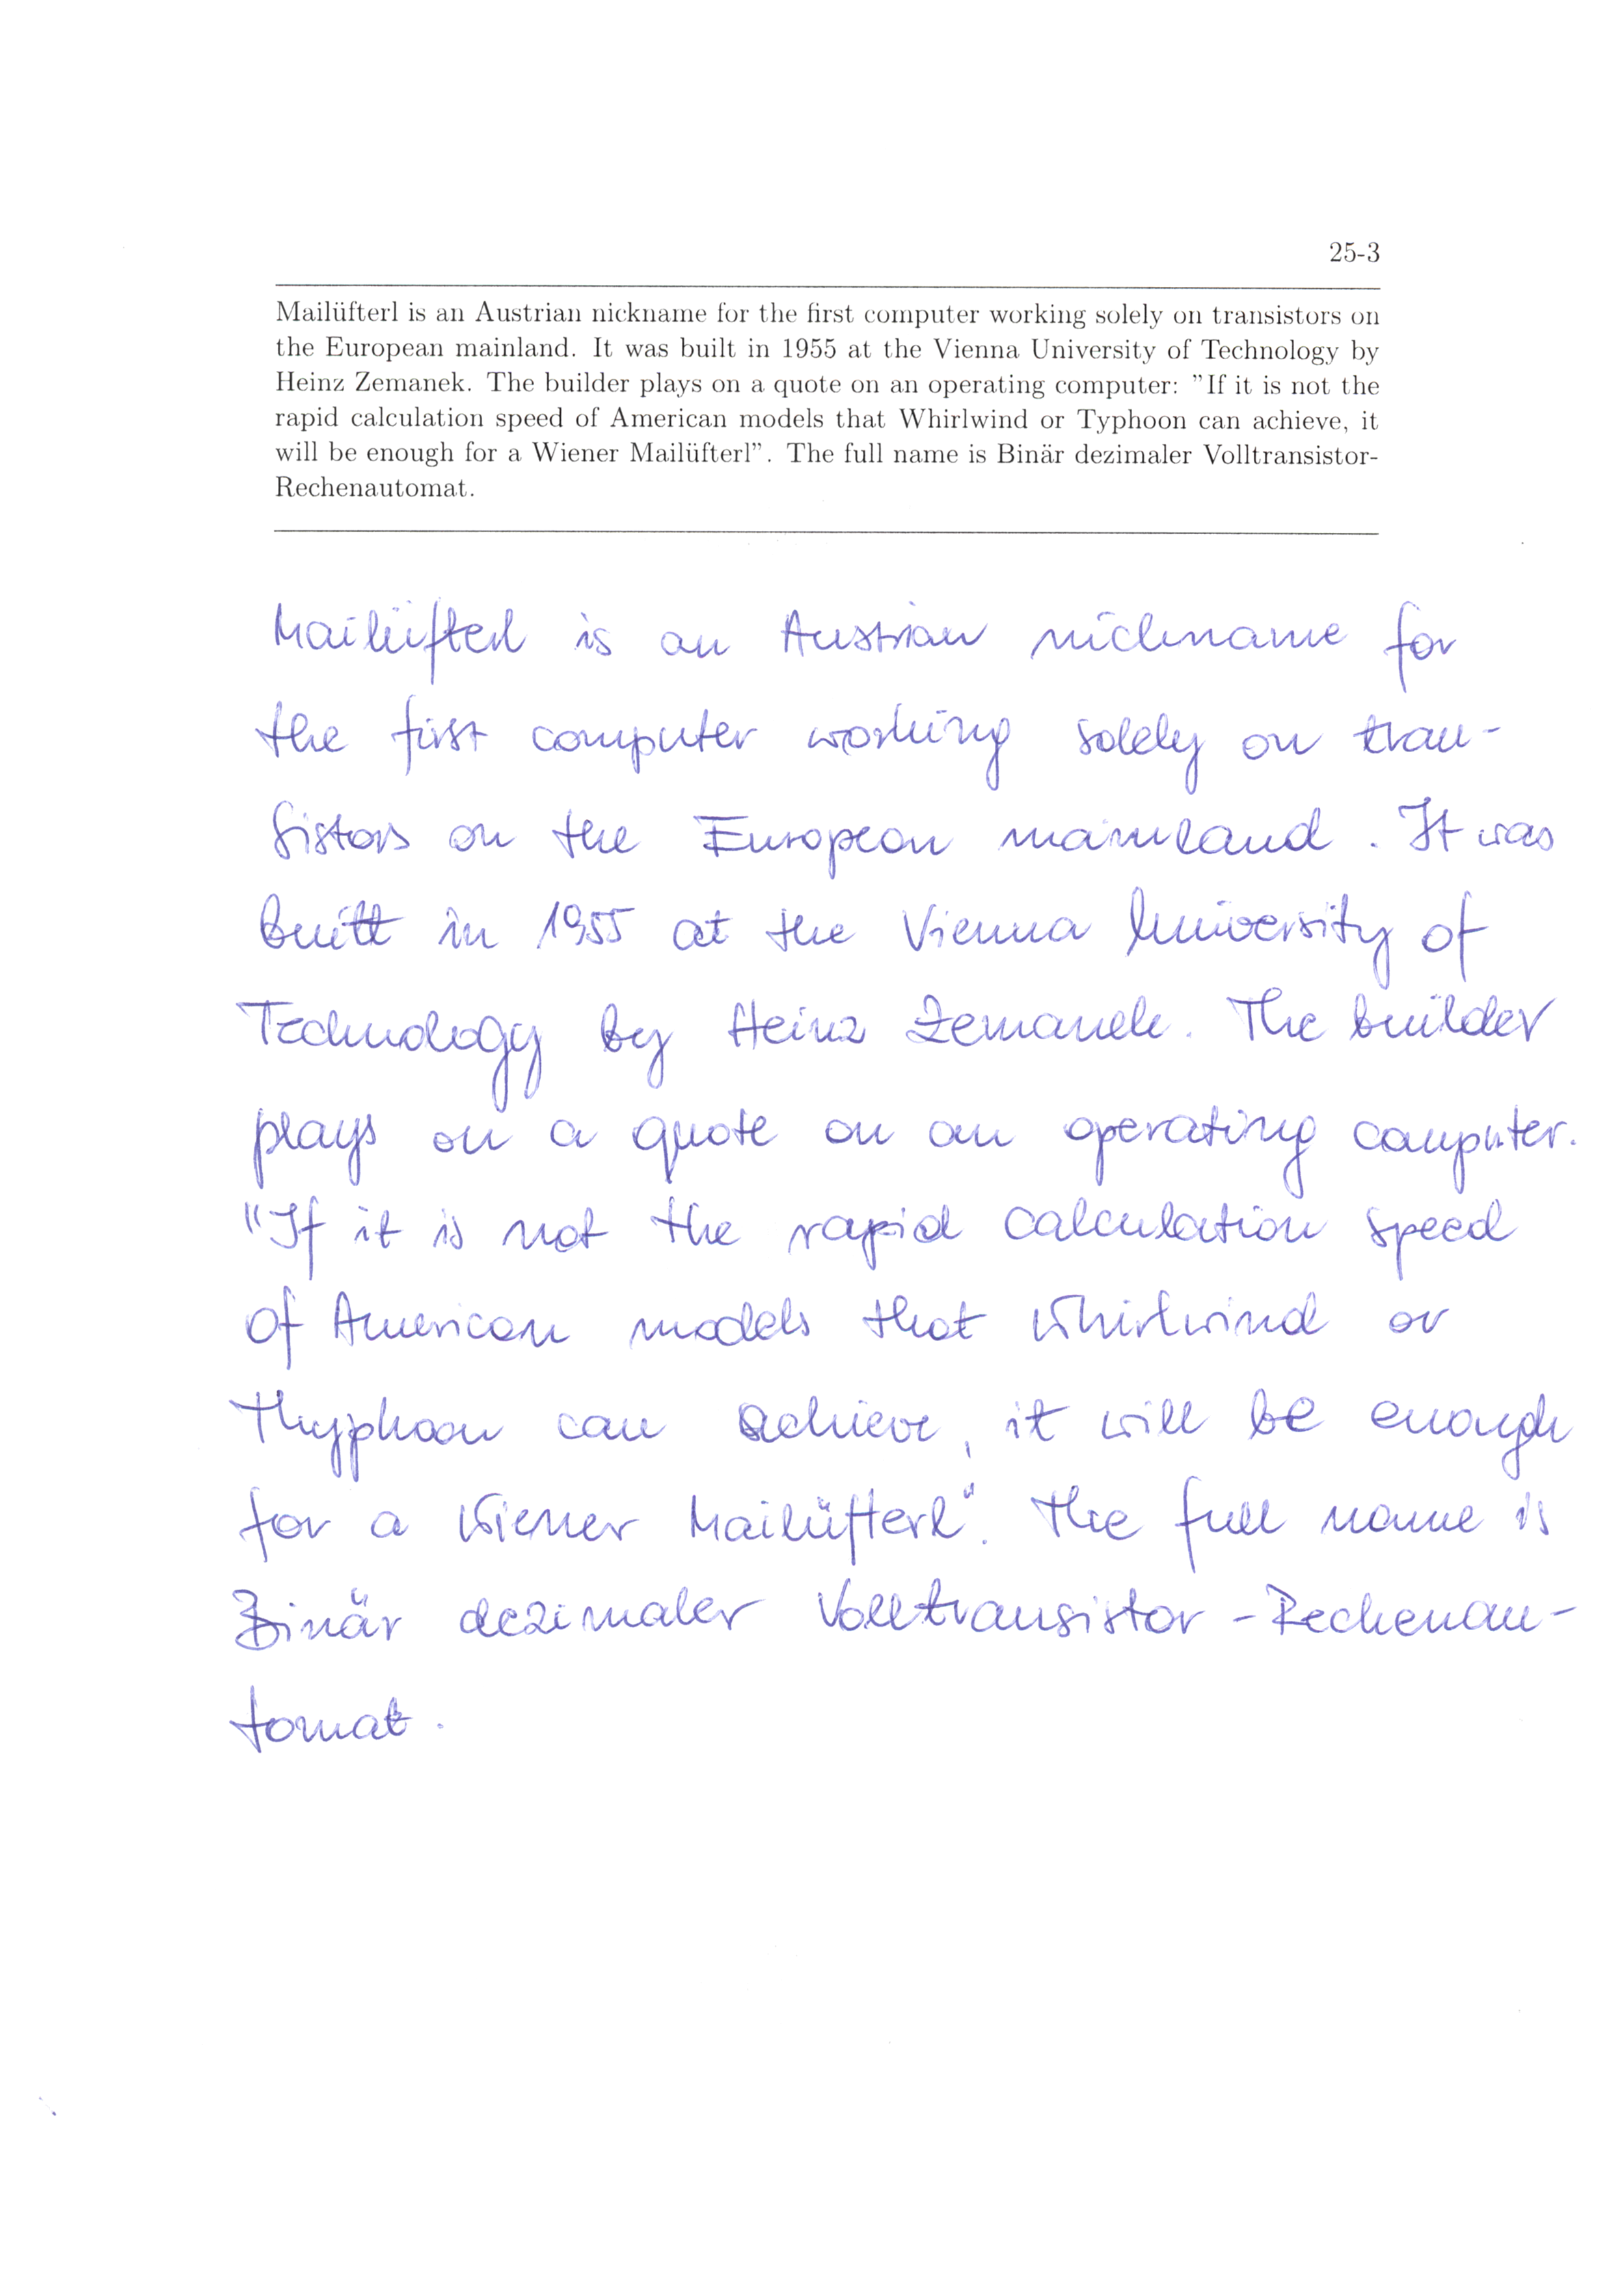 25-3
Mailüfterl is an Austrian nickname for the first computer working solely on transistors on
the European mainland. It was built in 1955 at the Vienna University of Technology by
Heinz Zemanek. The builder plays on a quote on an operating computer: "If it is not the
rapid calculation speed of American models that Whirlwind or Typhoon can achieve, it
will be enough for a Wiener Mailüfterl". The full name is Binär dezimaler Volltransistor-
Rechenautomat.
Mailüfterl is an Austrian nickname for
the first computer working solely on tran-
sistors on the European mainland. It was
built in 1955 at the Vienna University of
Technology by Heinz Zemanek. The builder
plays on a quote on an operating computer.
"If it is not the rapid calculation speed
of American models that Whirlwind or
Thyphoon can achieve, it will be enough
for a Wiener Mailüfterl". The full name is
Binär dezimaler Volltransistor-Rechenau-
tomat.